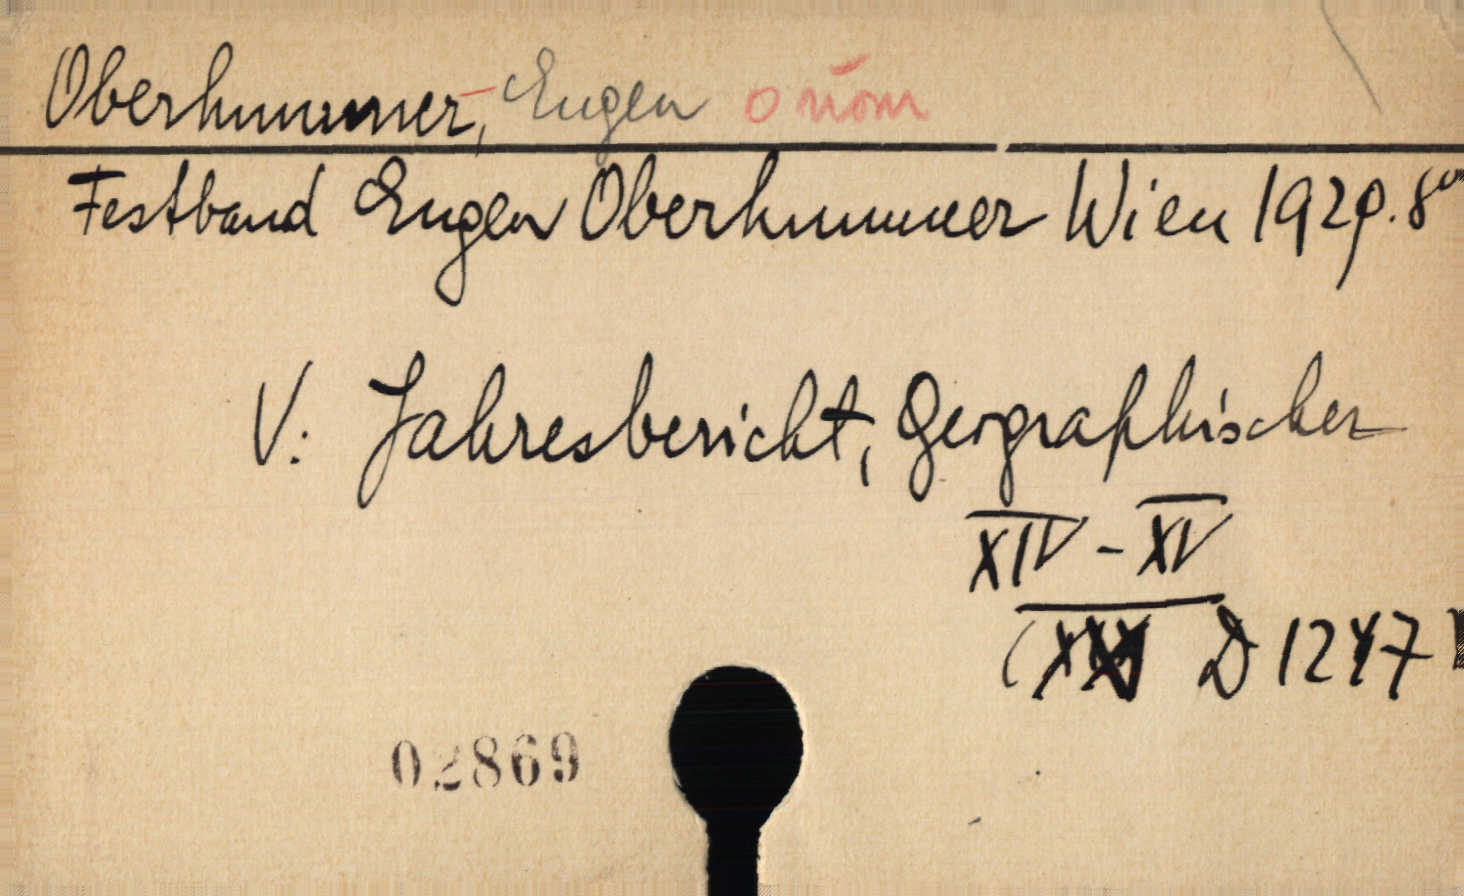 Oberhummer, Eugen o nom
Festband Eugen Oberhummer Wien 1929. 8°
V: Jahresbericht, Geographischer
XIV - XV
D 1247
02869